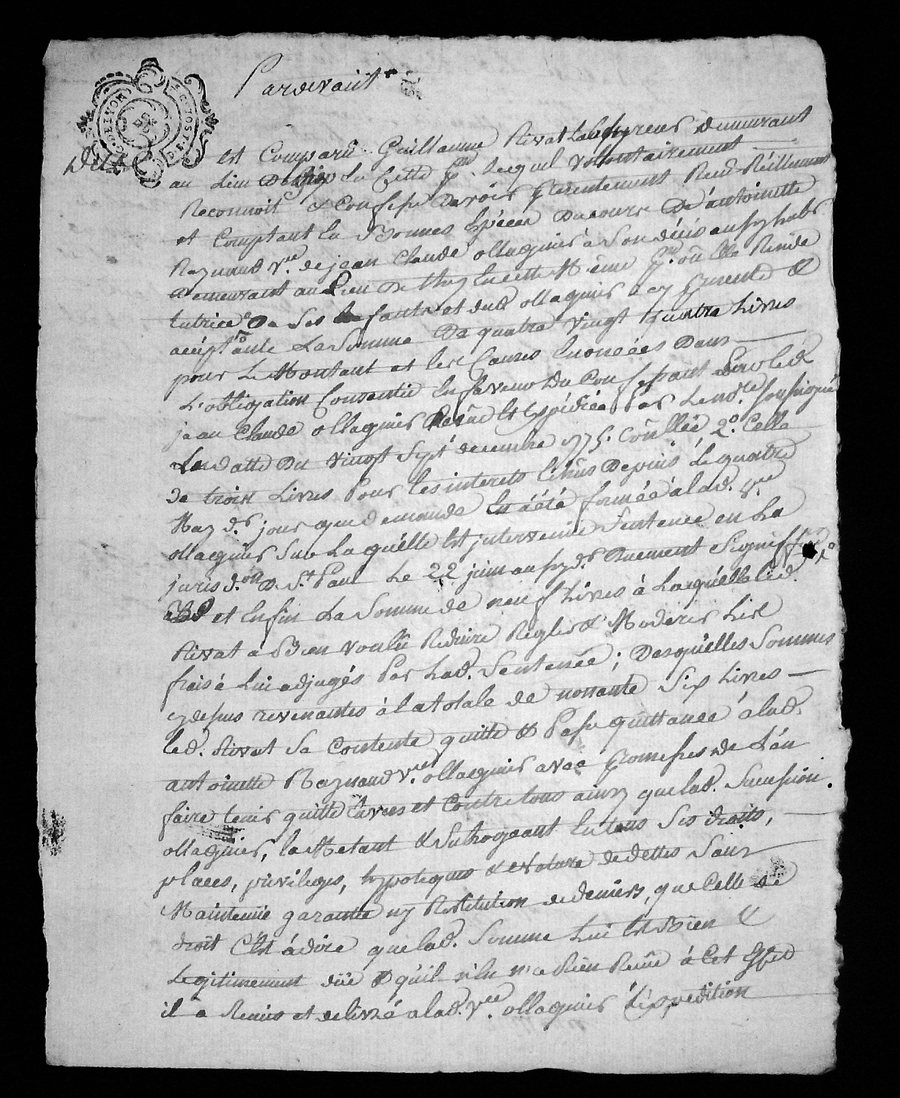 Pardevant
est Comparu Guillaume Rivat laboureur demeurant
au Lieu De la Cette Lequel Vollontairement
Reconnoit & Confesse davoir presentement Reçu Réellement
et Comptant En Bonnes Espèces Ducours De antoinette
Raynaud v.ve de jean Claude ollagnier a Son décès
demeurant au Lieu De En cette Même p.sse ou Elle Reside
tutrice De Ses Enfants et dud ollagnier ycy presente &
acceptante La Somme De quatre vingt quatre Livres
pour Le Montant et les Causes Enoncées Dans
L'obligation Consentie En faveur Du Confessant Par led.
jean Claude ollagnier Reçue Et Expédiée Par Le no.re soussigné
La datte Du vingt Sept decembre 1775. Conllée 2°. Cella
de trois Livres Pour les interets Echus Depuis Le quatre
May d.r jour que demande En a été formée à lad. v.ve
ollagnier Sur Laquelle Est intervenue Sentence en La
juris d.on de S.t Paul Le 22 juin au Duement Signiffiée
et Enfin La Somme de neuf Livres à Laquelle led.
Rivat a Bien voulu Reduire Regler & Modérer Les
frais à Lui adjugés Par Lad. Sentence; Desquelles Sommes
cydesus revenantes à la totale de nonante Six Livres
led. Rivat Sa Contente quitte & Passe quittance à lad.
antoinette Raynaud v.ve ollagnier avec promesses de L'en
faire tenir quitte Envers et Contre tous ainsy que lad. Sucession
ollagnier, la Metant & Subrogeant En tous Ses droits,
places, privileges, hypoteques & Nature de dettes Sans
Maintenüe garantie ny Restitution de deniers, que Celle de
droit C'est à dire que lad. Somme Lui Est Bien &
Legitimement düe & qu'il n'En a Rien Reçu à Cet Effet
il a Remis et delivré a lad. v.ve ollagnier L'expedition